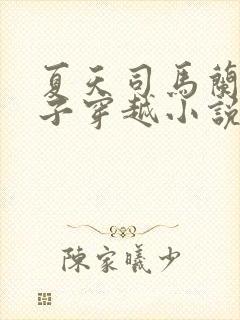 夏天司馬蘭
子穿越小説
陳家曦少